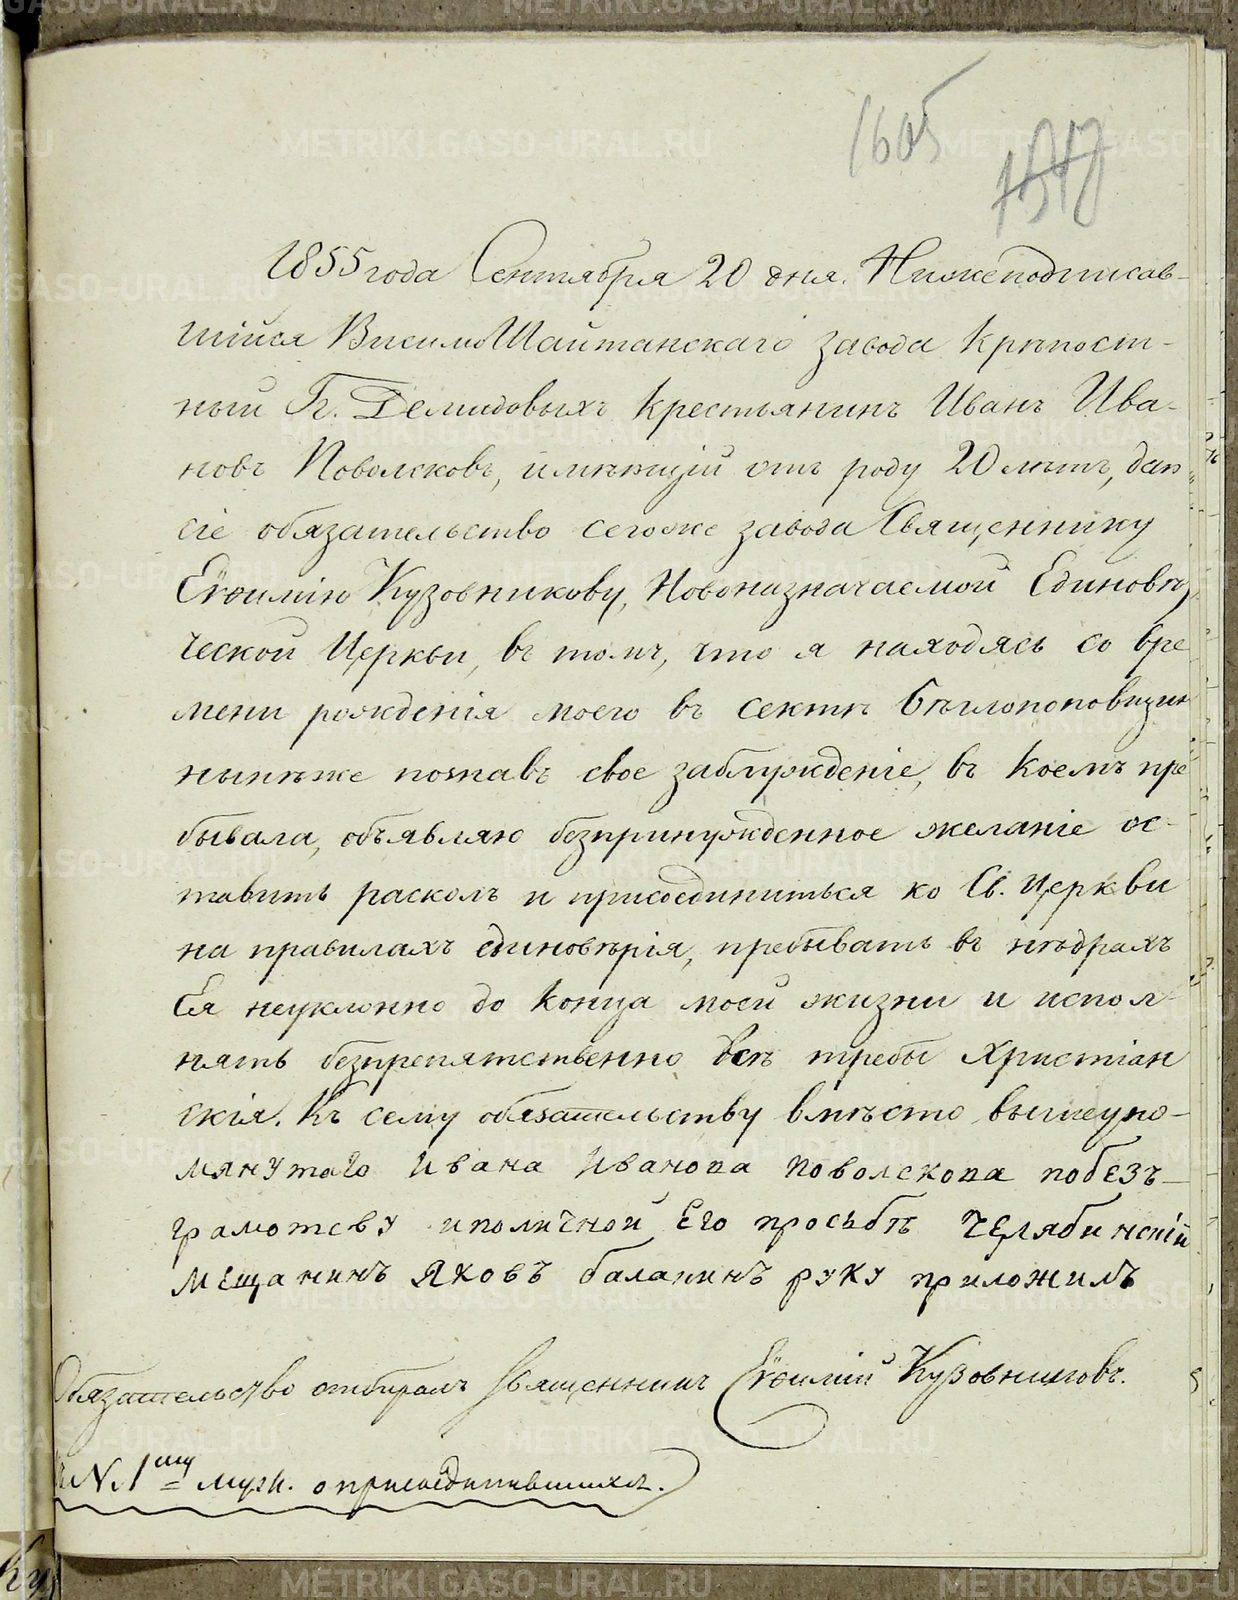 METRIKI.GASO-URAL.RU
1605
1855 года Сентября 20 дня. Нижеподписав-
шійся Висимо Шайтанскаго завода крѣпост-
ный Гг. Демидовыхъ крестьянинъ Иванъ Ива-
новъ Поволсковъ, имѣющій отъ роду 20 лѣтъ, далъ
сіе обязательство сегоже завода Священнику
Евѳимію Кузовникову, Новоназначаемой Единовѣр
ческой Церкви, въ томъ, что я находясь со вре
мени рожденія моего въ сектѣ бѣглопоповщин
нынѣже познавъ свое заблужденіе, въ коемъ пре
бывалъ, объявляю безпринужденное желаніе ос-
тавить расколъ и присоединиться ко Св. Церкви
на правилахъ единовѣрія, пребывать въ нѣдрахъ
Ея неуклонно до конца моей жизни и испол-
нять безпрепятственно всѣ требы Христіан
скія. Къ сему обязательству вмѣсто вышеупо-
мянутаго Ивана Иванова Поволскова побезъ-
грамотсву иполичной Его просьбѣ Челябинскій
мещанинъ Яковъ балакинъ руку приложилъ
Обязательство отбиралъ Священникъ Евѳимій Кузовниковъ.
№ 1му муж. о присоединившихся.